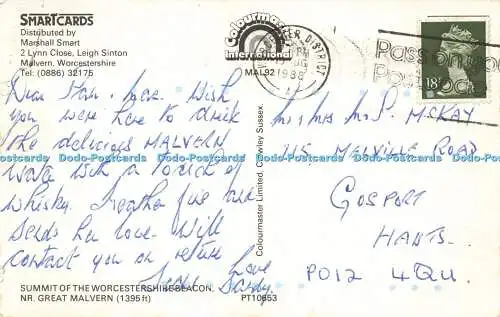 SMARTCARDS
Distributed by
Marshall Smart
2 Lynn Close, Leigh Sinton
Malvern, Worcestershire
Tel: (0886) 32175
Colourmaster
International
MAL92
DISTRICT
1988
Pass on
18P
Dear Stan, . Wish
you were here to drink
the delicious MALVERN
water with a touch of
whisky. Heather fine and
sends her love. Will
contact you on return
Love
Sandy.
Colourmaster Limited, Crawley Sussex.
Mr & Mrs P. MCKAY
115 MELVILLE ROAD
GOSPORT
HANTS
PO12 4QU
SUMMIT OF THE WORCESTERSHIRE BEACON,
NR. GREAT MALVERN (1395 ft)
PT10653
Dodo-Postcards Dodo-Postcards Dodo-Postcards Dodo-Postcards